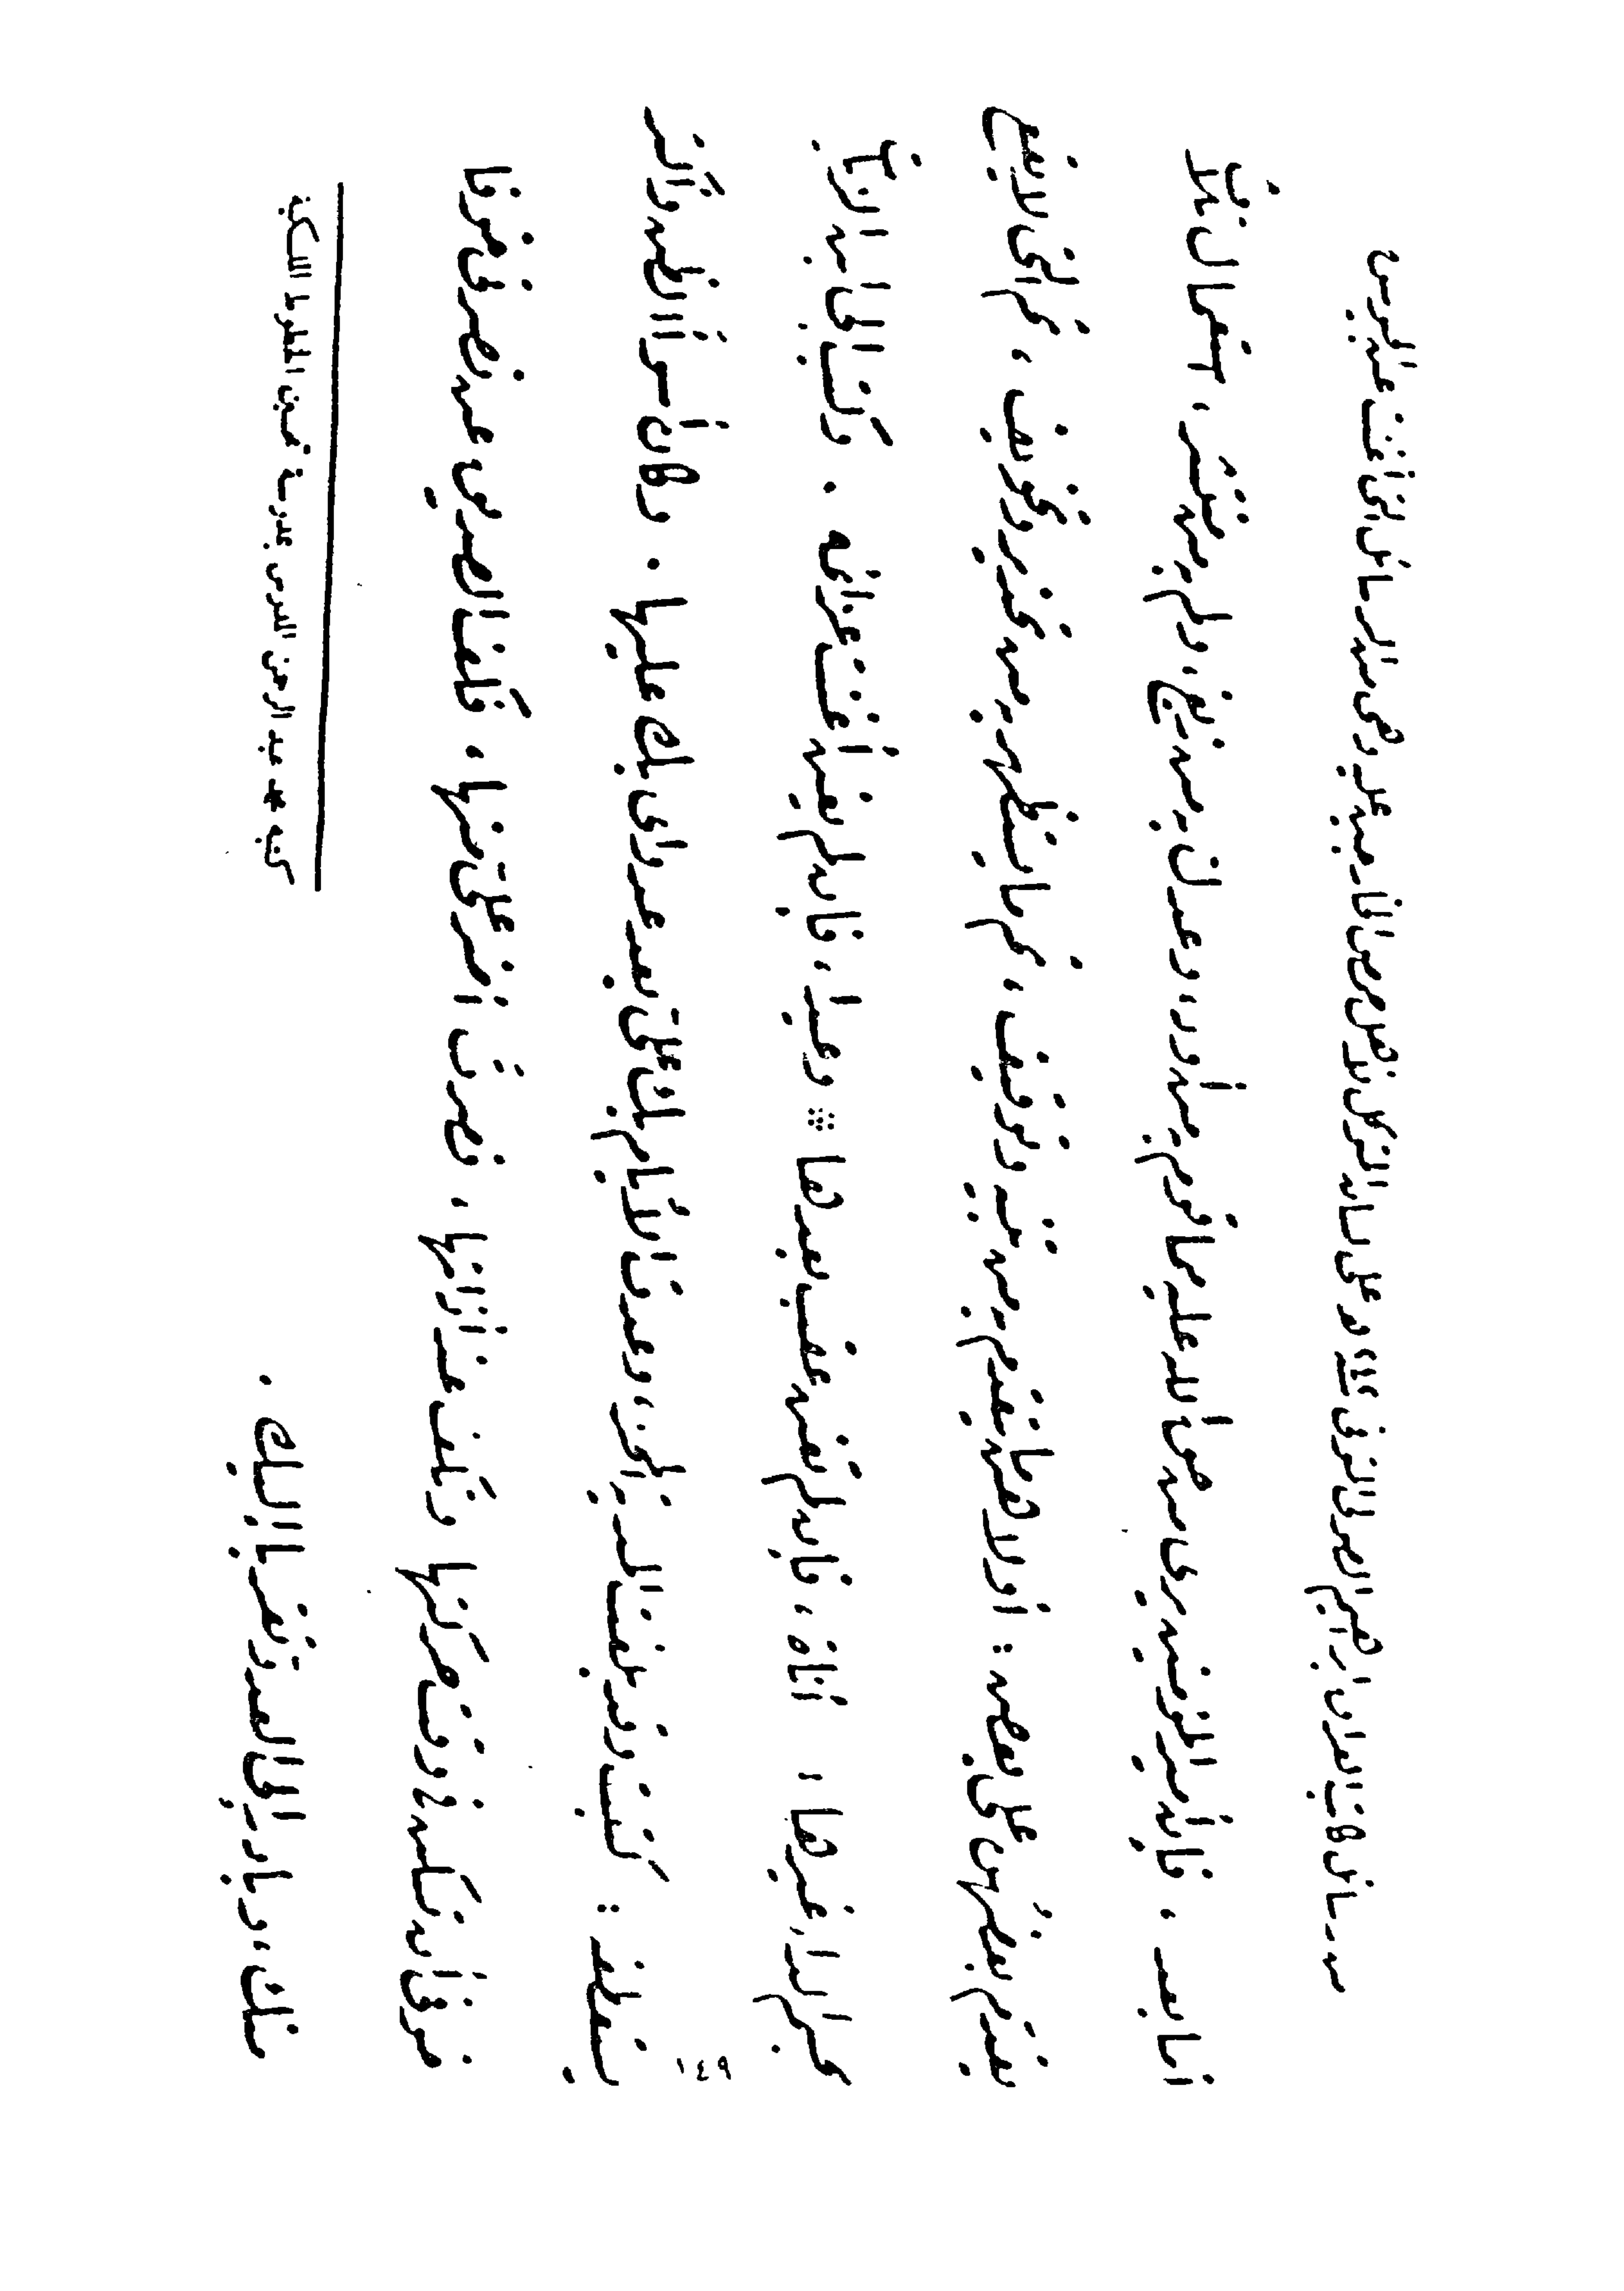 من رسائل كاتب العراق ابراهيم الصولى المتوفى ٢٤٣ وعلى لسانه المتوكل لأهل حمص الخارجين عليه وهى من الرسائل التى أغنت عن الجيوش
أما بعد ، فإن أمير المؤمنين يرى من حق الله عليه مما قوم به من أود ، وعدل به من زيغ ، ولم به من منتشر ، استعمال ثلاث
يقدم بعضهن على بعض : أولاهن ما تقدم به من تنبيه وتوقيف ، ثم ما يستظهر به من تحذير وتخويف ، ثم التى لا يقع
بحسم الداء غيرها ، أناة ، فإن لم تغن عقب بعدها * وعيدا ، فإن لم يغن أغنت عزائمه . وكتب إلى ابن الزيات
يستعطفه : كتبت وقد بلغت المدية المحز ، وعدت الأيام بك على بعد عدوى بك عليها . وكان أسوأ الظن وأكثر
خوفى أن تسكن فى وقت حركتها وتكف عند أذاتها ، فصرت أضر على منها ، فكف الصديق عن نصرتى خوفا
منك ، وبادر إلى العدو تقربا إليك .
كتبه محمد عبد الرحمن المدرس بمدرسة تحسين الخطوط الملكية
١٤٩